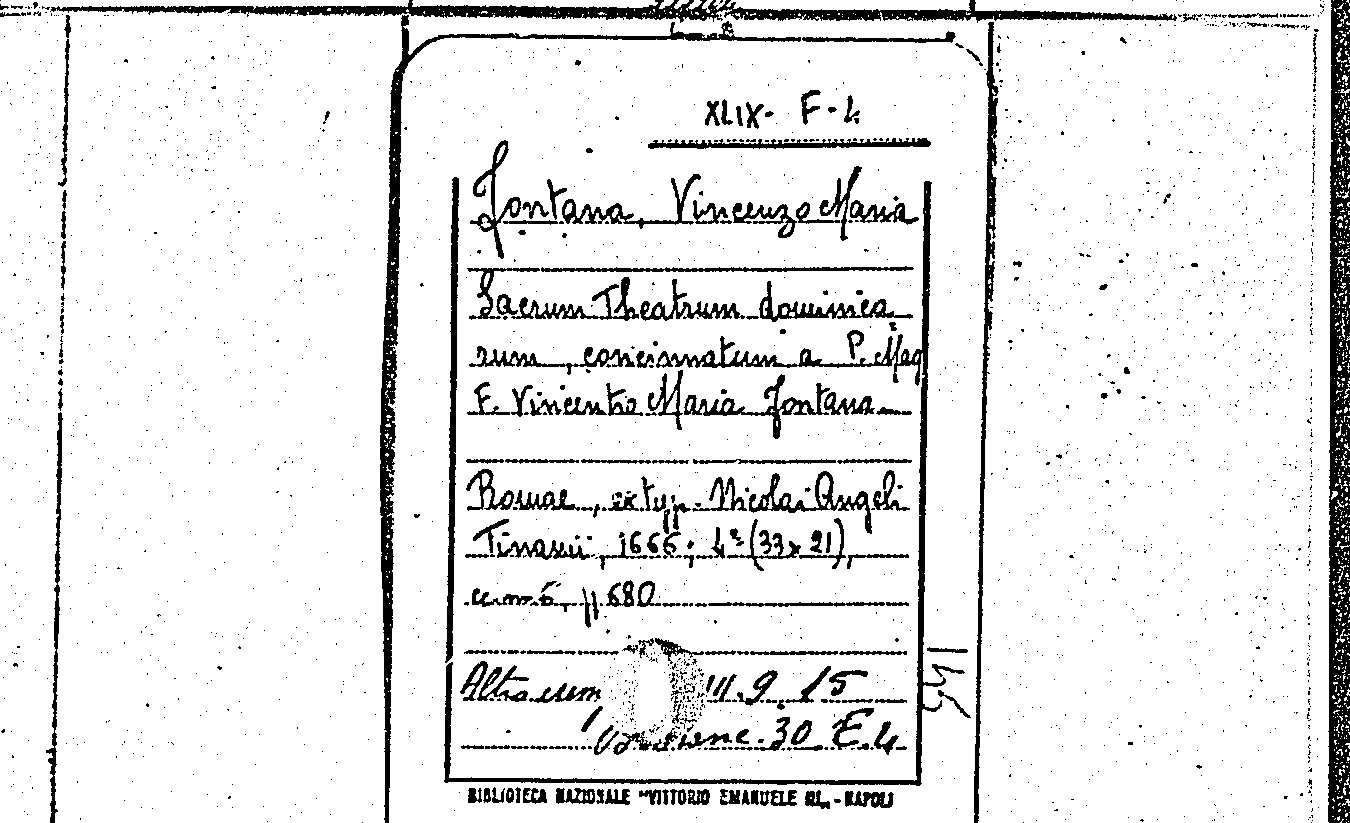 XLIX- F-4
Fontana, Vincenzo Maria
Sacrum Theatrum dominica
num, concinnatum a P. Mag
F. Vincentio Maria Fontana
Romae, ex typ. Nicolai Angeli
Tinassii, 1666; 4° (33x21),
pp 680
Altro esem 9. 15
30. E.4
BIBLIOTECA NAZIONALE "VITTORIO EMANUELE III" - NAPOLI